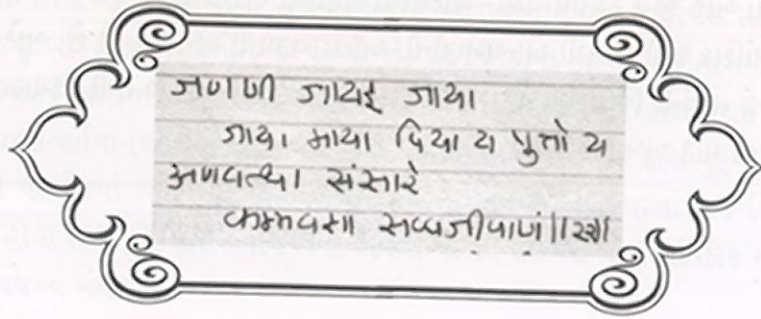 जणणी जायइ जाया
जाया माया पिया य पुत्तो य
अणवत्था संसारे
कम्मवसा सव्वजीवाणं ||२२||